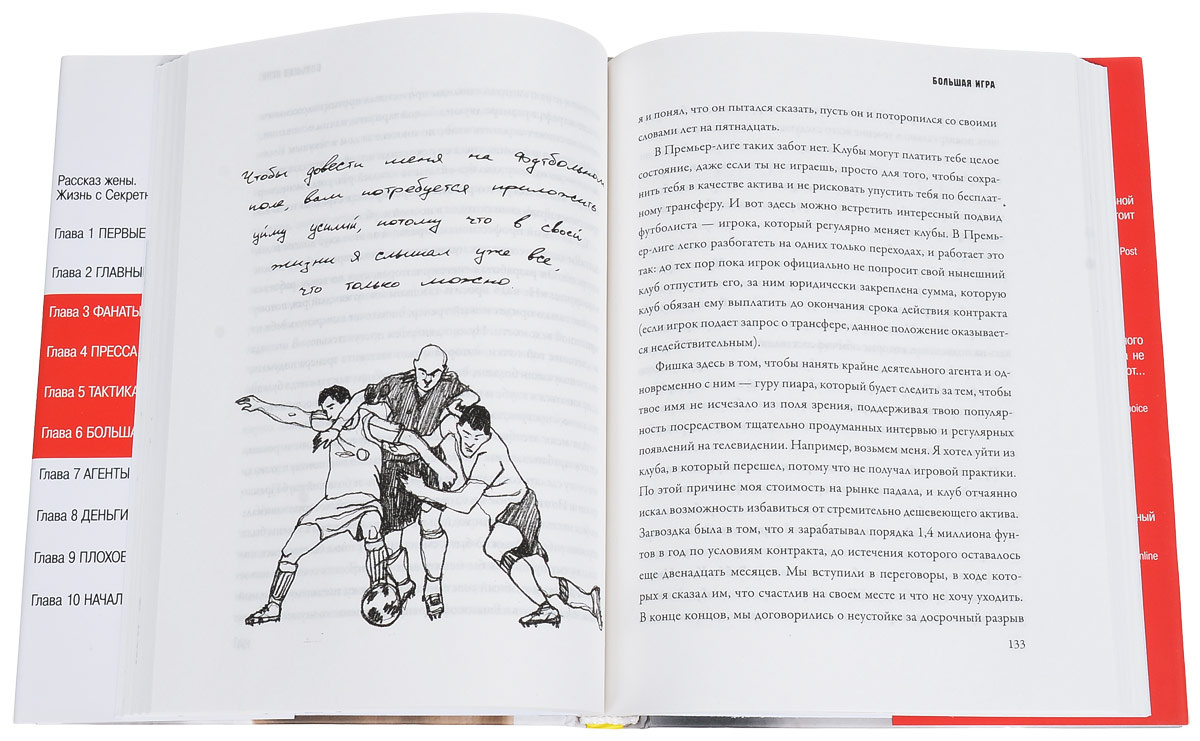 Рассказ жены.
Жизнь с Секретн
Глава 1 ПЕРВЫЕ
Глава 2 ГЛАВНЫ
Глава 3 ФАНАТЫ
Глава 4 ПРЕССА
Глава 5 ТАКТИКА
Глава 6 БОЛЬША
Глава 7 АГЕНТЫ
Глава 8 ДЕНЬГИ
Глава 9 ПЛОХОЕ
Глава 10 НАЧАЛ
Чтобы довести меня на футбольном
поле, вам потребуется приложить
уйму усилий, потому что в своей
жизни я слышал уже все,
что только можно
БОЛЬШАЯ ИГРА
я и понял, что он пытался сказать, пусть он и поторопился со своими
словами лет на пятнадцать.
В Премьер-лиге таких забот нет. Клубы могут платить тебе целое
состояние, даже если ты не играешь, просто для того, чтобы сохра-
нить тебя в качестве актива и не рисковать упустить тебя по бесплат-
ному трансферу. И вот здесь можно встретить интересный подвид
футболиста — игрока, который регулярно меняет клубы. В Премь-
ер-лиге легко разбогатеть на одних только переходах, и работает это
так: до тех пор пока игрок официально не попросит свой нынешний
клуб отпустить его, за ним юридически закреплена сумма, которую
клуб обязан ему выплатить до окончания срока действия контракта
(если игрок подает запрос о трансфере, данное положение оказывает-
ся недействительным).
Фишка здесь в том, чтобы нанять крайне деятельного агента и од-
новременно с ним — гуру пиара, который будет следить за тем, чтобы
твое имя не исчезало из поля зрения, поддерживая твою популяр-
ность посредством тщательно продуманных интервью и регулярных
появлений на телевидении. Например, возьмем меня. Я хотел уйти из
клуба, в который перешел, потому что не получал игровой практики.
По этой причине моя стоимость на рынке падала, и клуб отчаянно
искал возможность избавиться от стремительно дешевеющего актива.
Загвоздка была в том, что я зарабатывал порядка 1,4 миллиона фун-
тов в год по условиям контракта, до истечения которого оставалось
еще двенадцать месяцев. Мы вступили в переговоры, в ходе кото-
рых я сказал им, что счастлив на своем месте и что не хочу уходить.
В конце концов, мы договорились о неустойке за досрочный разрыв
133
вной
тоит
Post
ного
а не
от...
hoice
ный
nline